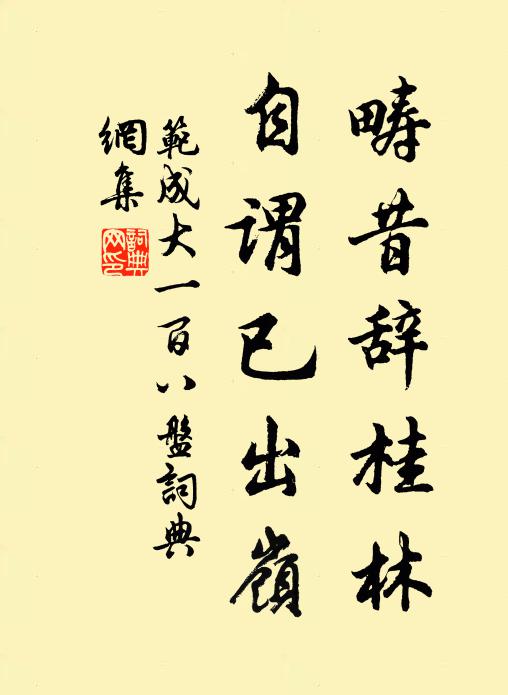 畴昔辞桂林
自谓已出嶺
範成大一百八盤詞典
網集
詞典
网印